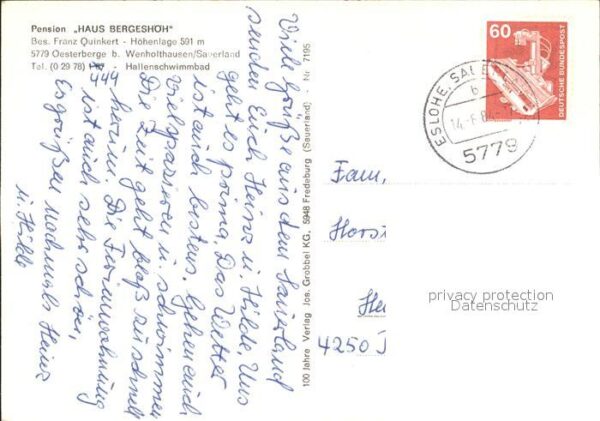 Pension „HAUS BERGESHÖH"
Bes. Franz Quinkert - Höhenlage 591 m
5779 Oesterberge b. Wenholthausen/Sauerland
Tel. (0 29 78) 444 - Hallenschwimmbad
Viele Grüße aus dem Sauerland
senden Euch Heinz u. Hilde. Uns
geht es prima. Das Wetter
ist auch bestens. Gehen auch
viel spazieren u. schwimmen
Die Zeit geht bloß zu schnell
herum. Die Ferienwohnung
ist auch sehr schön.
Es grüßen nochmals Heinz
u. Hilde
100 Jahre Verlag Jos. Grobbel KG, 5948 Fredeburg (Sauerland) - Nr. 7195
60
DEUTSCHE BUNDESPOST
ESLOHE, SAUE
b
14.-6.8
5779
Fam,
Horst
He
4250
privacy protection
Datenschutz